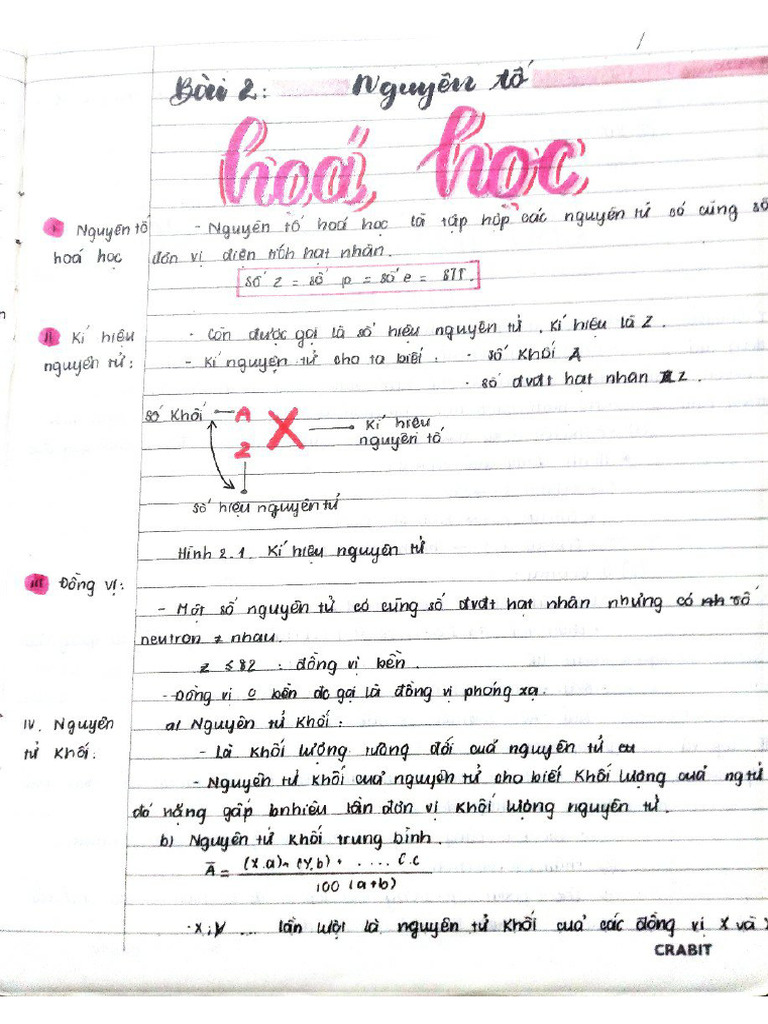 Bài 2: Nguyên tố
hoá học
I Nguyên tố - Nguyên tố hoá học là tập hợp các nguyên tử có cùng số
hoá học đơn vị điện tích hạt nhân.
Số Z = số p = số e = STT.
II Kí hiệu - Còn được gọi là số hiệu nguyên tử, kí hiệu là Z.
nguyên tử: - Kí nguyên tử cho ta biết: - số khối A
- số đvđt hạt nhân Z.
số khối A X Kí hiệu
nguyên tố
Z
số hiệu nguyên tử
Hình 2.1. Kí hiệu nguyên tử
III Đồng vị:
- Một số nguyên tử có cùng số đvđt hạt nhân nhưng có số
neutron ≠ nhau.
Z ≤ 82 : đồng vị bền.
- Đồng vị 0 bền đc gọi là đồng vị phóng xạ.
IV. Nguyên a) Nguyên tử khối:
tử khối: - Là khối lượng tương đối của nguyên tử
- Nguyên tử khối của nguyên tử cho biết khối lượng của ng tử
đó nặng gấp bnhiêu lần đơn vị khối lượng nguyên tử.
b) Nguyên tử khối trung bình.
Ā = (X.a)+(Y.b)+ .... C.c
100 (a+b)
- X, Y ... lần lượt là nguyên tử khối của các đồng vị X và
CRABIT